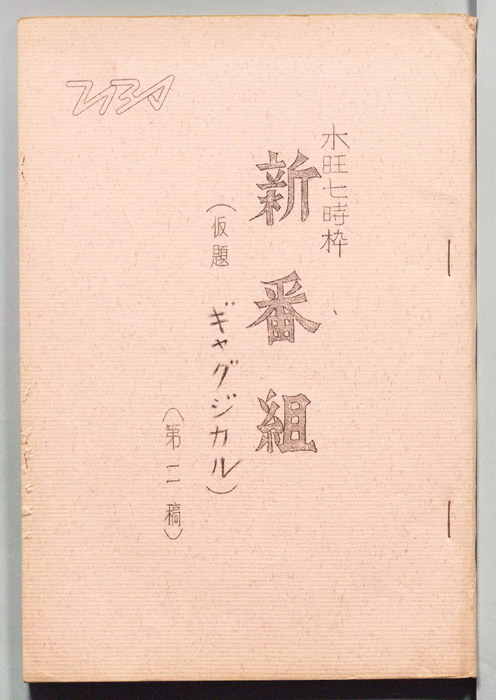 水旺七時枠
新番組
(仮題 ギャグジカル)
(第二稿)